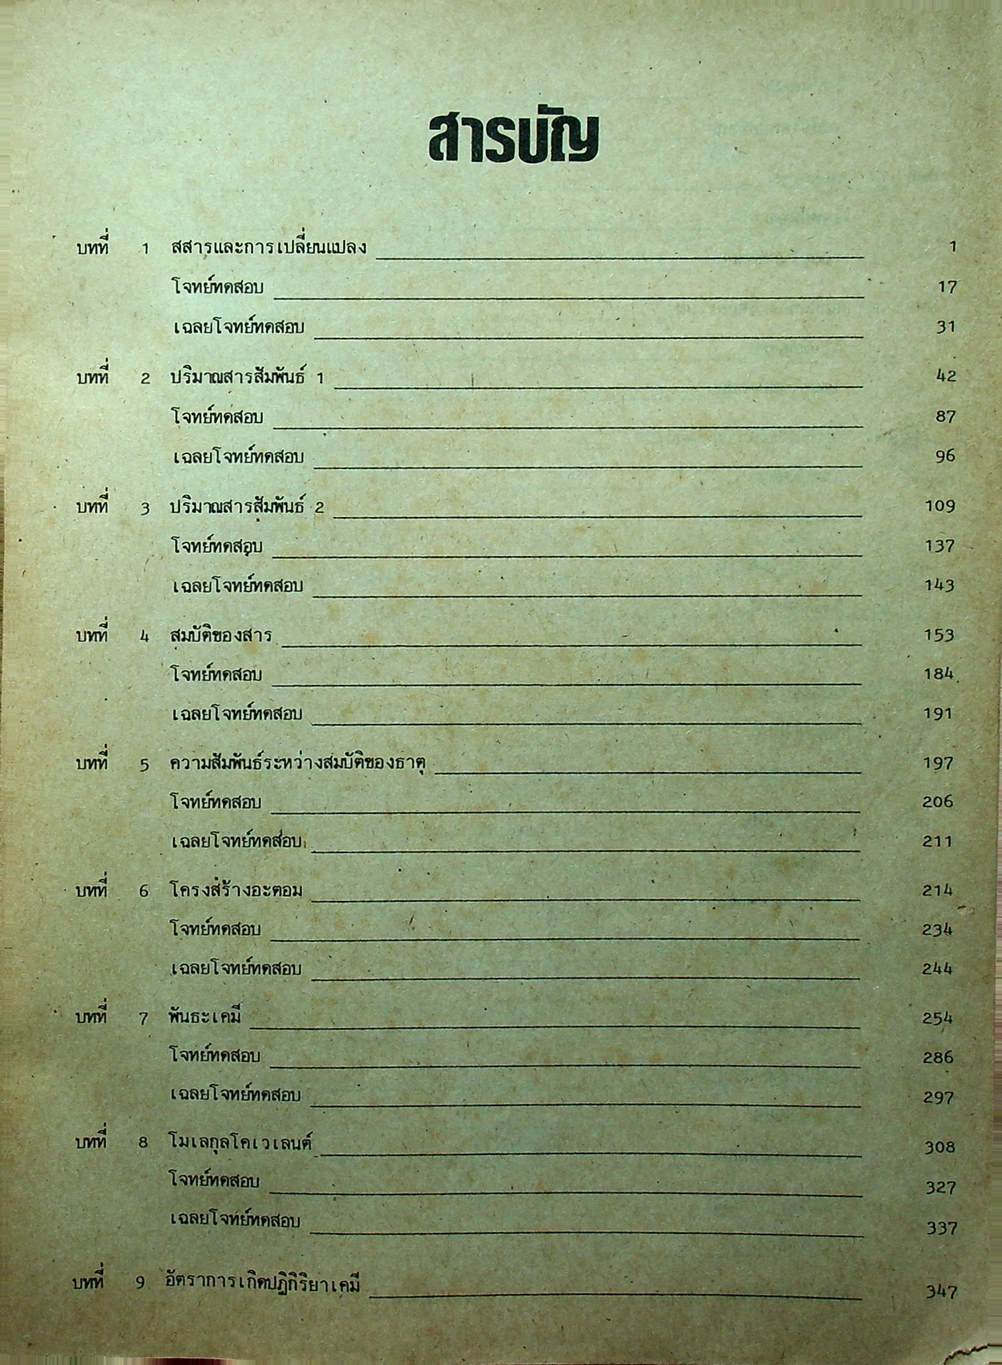 สารบัญ
บทที่ 1 สสารและการเปลี่ยนแปลง 1
โจทย์ทดสอบ 17
เฉลยโจทย์ทดสอบ 31
บทที่ 2 ปริมาณสารสัมพันธ์ 1 42
โจทย์ทดสอบ 87
เฉลยโจทย์ทดสอบ 96
บทที่ 3 ปริมาณสารสัมพันธ์ 2 109
โจทย์ทดสอบ 137
เฉลยโจทย์ทดสอบ 143
บทที่ 4 สมบัติของสาร 153
โจทย์ทดสอบ 184
เฉลยโจทย์ทดสอบ 191
บทที่ 5 ความสัมพันธ์ระหว่างสมบัติของธาตุ 197
โจทย์ทดสอบ 206
เฉลยโจทย์ทดสอบ 211
บทที่ 6 โครงสร้างอะตอม 214
โจทย์ทดสอบ 234
เฉลยโจทย์ทดสอบ 244
บทที่ 7 พันธะเคมี 254
โจทย์ทดสอบ 286
เฉลยโจทย์ทดสอบ 297
บทที่ 8 โมเลกุลโคเวเลนต์ 308
โจทย์ทดสอบ 327
เฉลยโจทย์ทดสอบ 337
บทที่ 9 อัตราการเกิดปฏิกิริยาเคมี 347